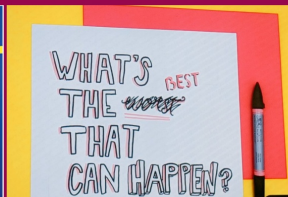 WHAT'S
BEST
THE worst
THAT
CAN HAPPEN?